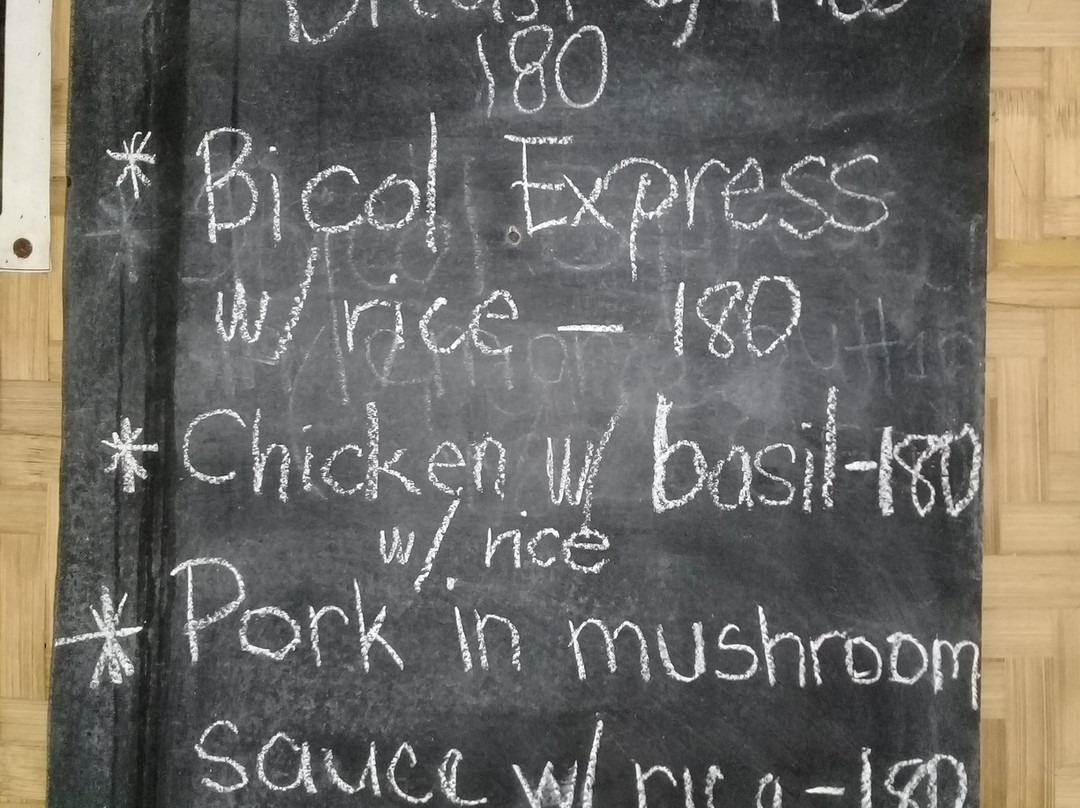 Breast w/ rice
180
* Bicol Express
w/ rice - 180
* Chicken w/ basil-180
w/ rice
* Pork in mushroom
sauce w/ rice-180